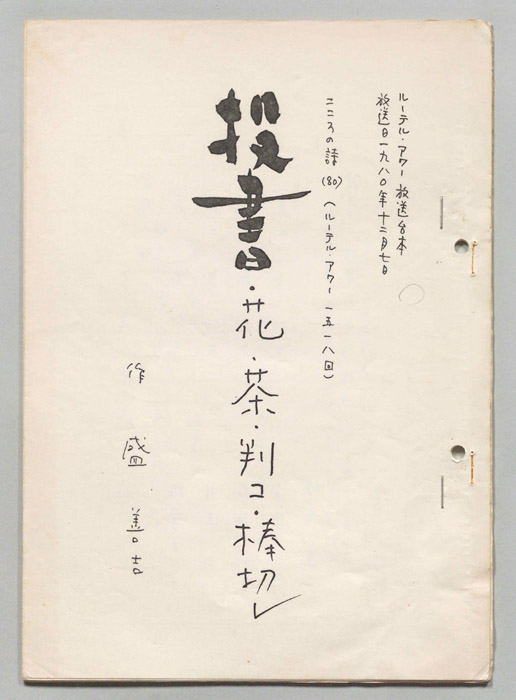 ルーテル・アワー 放送台本
放送日 一九八〇年十二月七日
こころの詩 (80) (ルーテル・アワー 一五一八回)
投書・花・茶・判コ・棒切レ
作 盛 善吉